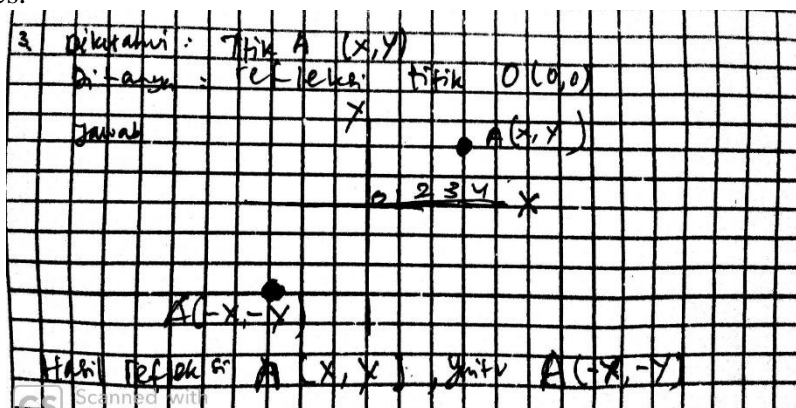 es.
3. Diketahui : Titik A (x,y)
Ditanya : refleksi titik O (0,0)
Jawab
Y
A(x,y)
0 1 2 3 4 X
A(-x,-y)
Hasil refleksi A (x,y), yaitu A(-x,-y)
CS Scanned with